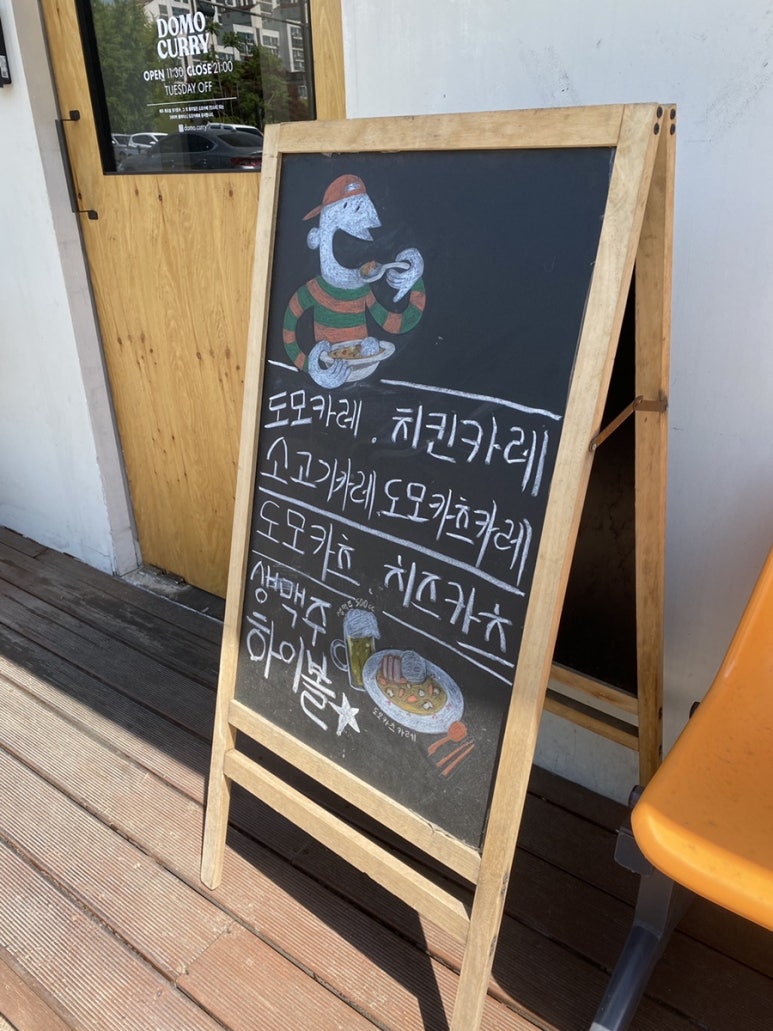 DOMO
CURRY
OPEN 11:30 CLOSE 21:00
TUESDAY OFF
domo.curry
도모카레 . 치킨카레
소고기카레 . 도모카츠카레
도모카츠 . 치즈카츠
생맥주
500cc
하이볼
도모카츠카레